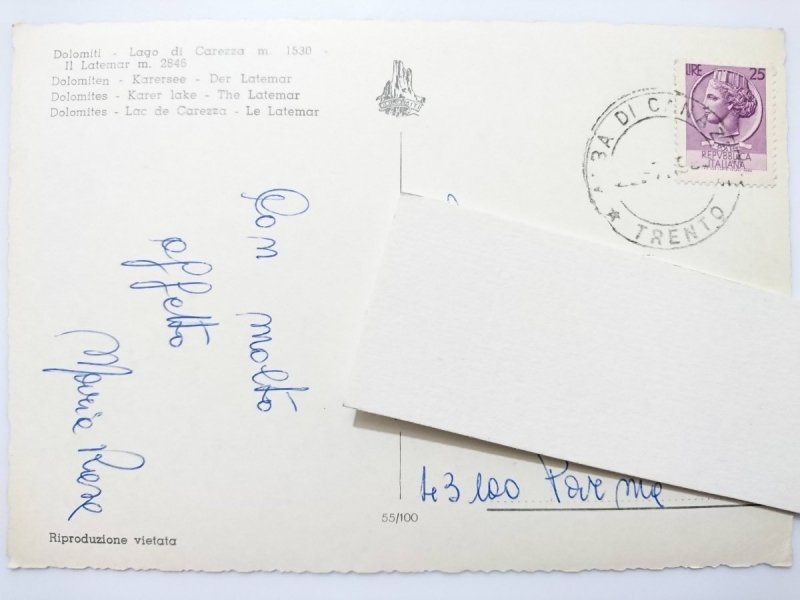 Dolomiti - Lago di Carezza m. 1530 -
Il Latemar m. 2846
Dolomiten - Karersee - Der Latemar
Dolomites - Karer lake - The Latemar
Dolomites - Lac de Carezza - Le Latemar
LIRE 25
REPVBBLICA
ITALIANA
ALBA DI CANAZEI
TRENTO
Con molto
affetto
Maria Rosa
43100 Parma
55/100
Riproduzione vietata